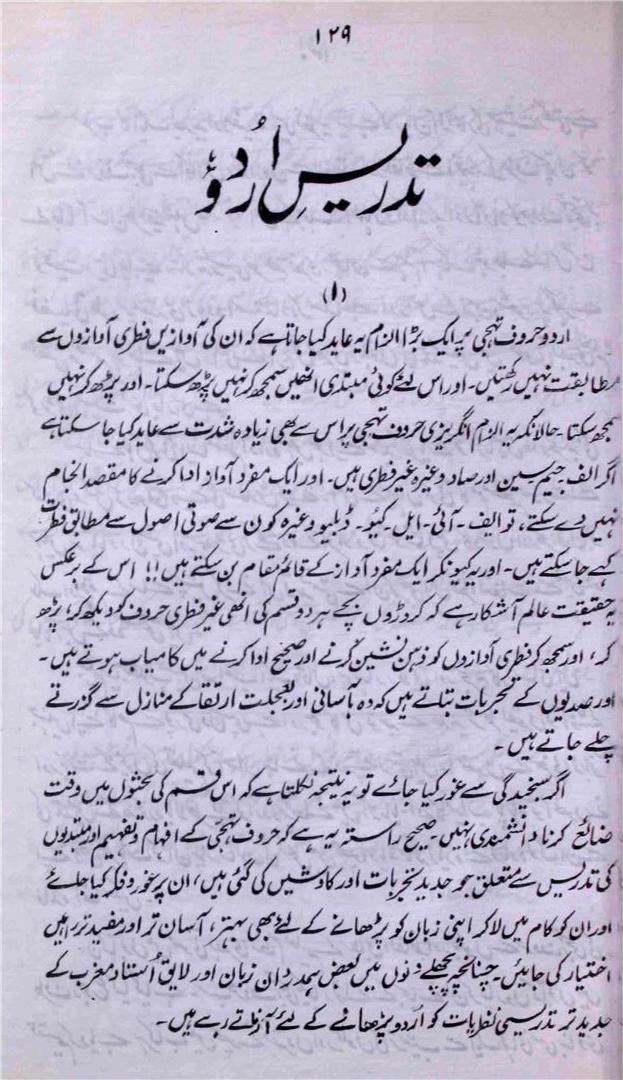 ۱۲۹
تدریسِ اُردو
(۱)
اردو حروف تہجی پر ایک بڑا الزام یہ عاید کیا جاتا ہے کہ ان کی آوازیں فطری آوازوں سے
مطابقت نہیں رکھتیں۔ اور اس لئے کوئی مبتدی انھیں سمجھ کر نہیں پڑھ سکتا۔ اور پڑھ کر نہیں
سمجھ سکتا۔ حالانکہ یہ الزام انگریزی حروف تہجی پر اس سے بھی زیادہ شدت سے عاید کیا جا سکتا ہے
اگر الف جیم سین اور صاد وغیرہ غیر فطری ہیں۔ اور ایک مفرد آواز ادا کرنے کا مقصد انجام
نہیں دے سکتے، تو ایف۔ آئی۔ ایل۔ کیو۔ ڈبلیو وغیرہ کون سے صوتی اصول سے مطابق فطرت
کہے جا سکتے ہیں۔ اور یہ کیونکر ایک مفرد آواز کے قائم مقام بن سکتے ہیں!! اس کے برعکس
یہ حقیقت عالم آشکار ہے کہ کروڑوں بچے ہر دو قسم کی انھی غیر فطری حروف کو دیکھ کر، پڑھ
کر، اور سمجھ کر فطری آوازوں کو ذہن نشین کرنے اور صحیح ادا کرنے میں کامیاب ہوتے ہیں۔
اور صدیوں کے تجربات بتاتے ہیں کہ وہ بآسانی اور بعجلت ارتقا کے منازل سے گزرتے
چلے جاتے ہیں۔
اگر سنجیدگی سے غور کیا جائے تو یہ نتیجہ نکلتا ہے کہ اس قسم کی بحثوں میں وقت
ضائع کرنا دانشمندی نہیں۔ صحیح راستہ یہ ہے کہ حروف تہجی کے افہام و تفہیم اور مبتدیوں
کی تدریس سے متعلق جو جدید تجربات اور کاوشیں کی گئی ہیں، ان پر غور و فکر کیا جائے
اور ان کو کام میں لا کر اپنی زبان کو پڑھانے کے لئے بھی بہتر، آسان تر اور مفید تر راہیں
اختیار کی جائیں۔ چنانچہ پچھلے دنوں میں بعض ہمدردان زبان اور لایق اُستاد مغرب کے
جدید تر تدریسی نظریات کو اُردو پڑھانے کے لئے آزماتے رہے ہیں۔